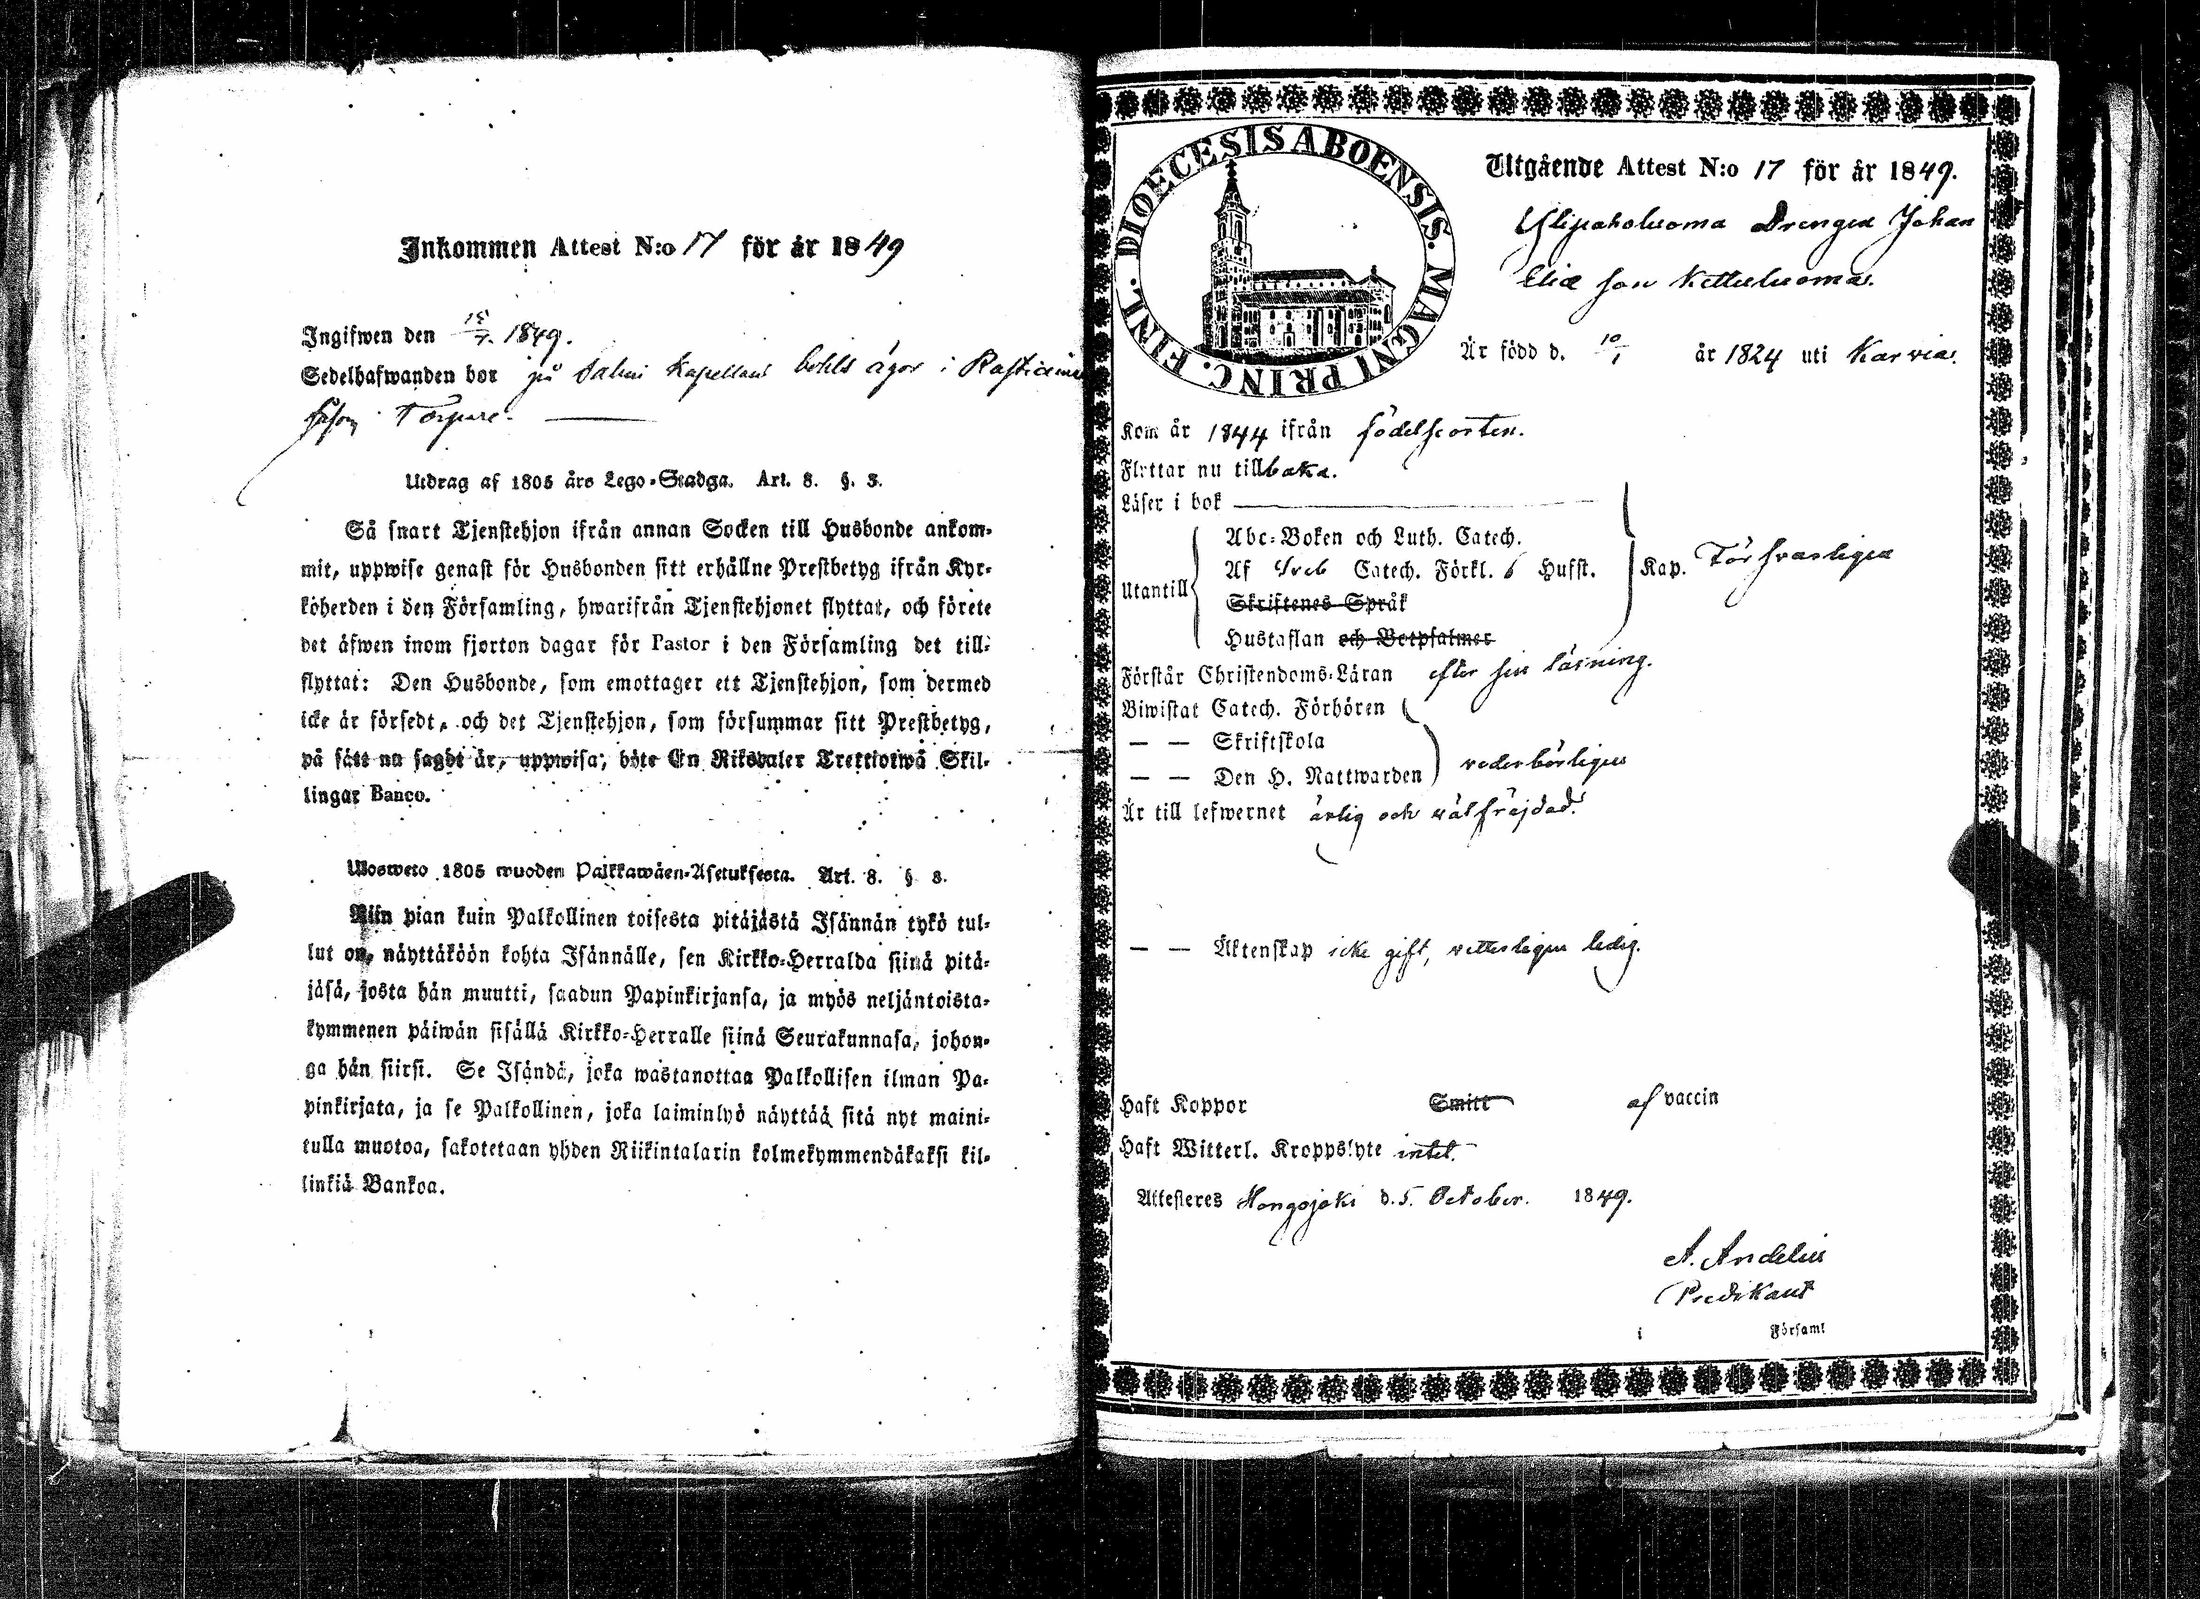 Inkommen Attest N:o 17 för år 1849
Ingifwen den 15/7. 1849.
Sedelhafwanden bor på Salmi Kapellans bohls ägor i
såsom Torpare.
Utdrag af 1805 års Lego-Stadga. Art. 8. §. 3.
Så snart Tjenstehjon ifrån annan Socken till Husbonde ankom-
mit, uppwise genast för Husbonden sitt erhällne Prestbetyg ifrån Kyr-
koherden i den Församling, hwarifrån Tjenstehjonet flyttat, och förete
det äfwen inom fjorton dagar för Pastor i den Församling det till-
flyttat: Den Husbonde, som emottager ett Tjenstehjon, som dermed
icke är försedt, och det Tjenstehjon, som försummar sitt Prestbetyg,
på sätt nu sagdt är, uppwisa, böte En Riksdaler Trettiotwå Skil-
lingar Banco.
Ulosweto 1805 wuoden Palkkawäen-Asetuksesta. Art. 8. § 3.
Niin pian kuin Palkollinen toisesta pitäjästä Isännän tykö tul-
lut on, näyttäköön kohta Isännälle, sen Kirkko-Herralda siinä pitä-
jäsä, josta hän muutti, saadun Papinkirjansa, ja myös neljäntoista-
kymmenen päiwän sisällä Kirkko-Herralle siinä Seurakunnasa, johon-
ga hän siirsi. Se Isändä, joka wastanottaa Palkollisen ilman Pa-
pinkirjata, ja se Palkollinen, joka laiminlyö näyttää sitä nyt maini-
tulla muotoa, sakotetaan yhden Riikintalarin kolmekymmendäkaksi kil-
linkiä Bankoa.
DIOECESIS ABOENSIS. MAGNI PRINC. FINL.
Utgående Attest N:o 17 för år 1849.
Ylipaholuoma Drengen Johan
Eliæ son Ketteluoma.
Är född d. 10/1 år 1824 uti Karvia.
Kom år 1844 ifrån födelseorten.
Flyttar nu tillbaka.
Läser i bok
Utantill
Abc-Boken och Luth. Catech.
Af Sveb Catech. Förkl. 6 Hufst.
Kap. Försvarligen
Skriftenes Språk
Hustaflan och Botpsalmer
Förstår Christendoms-Läran efter sin läsning.
Biwistat Catech. Förhören
— — Skriftskola
— — Den H. Nattwarden
vederbörligen
Är till lefwernet ärlig och välfräjdad.
— — Äktenskap icke gift, vetterligen ledig.
Haft Koppor Smitt af vaccin
Haft Witterl. Kroppslyte intet.
Attesteres Hongojoki d. 5. October. 1849.
A. Andelin
Predikant
i Församl